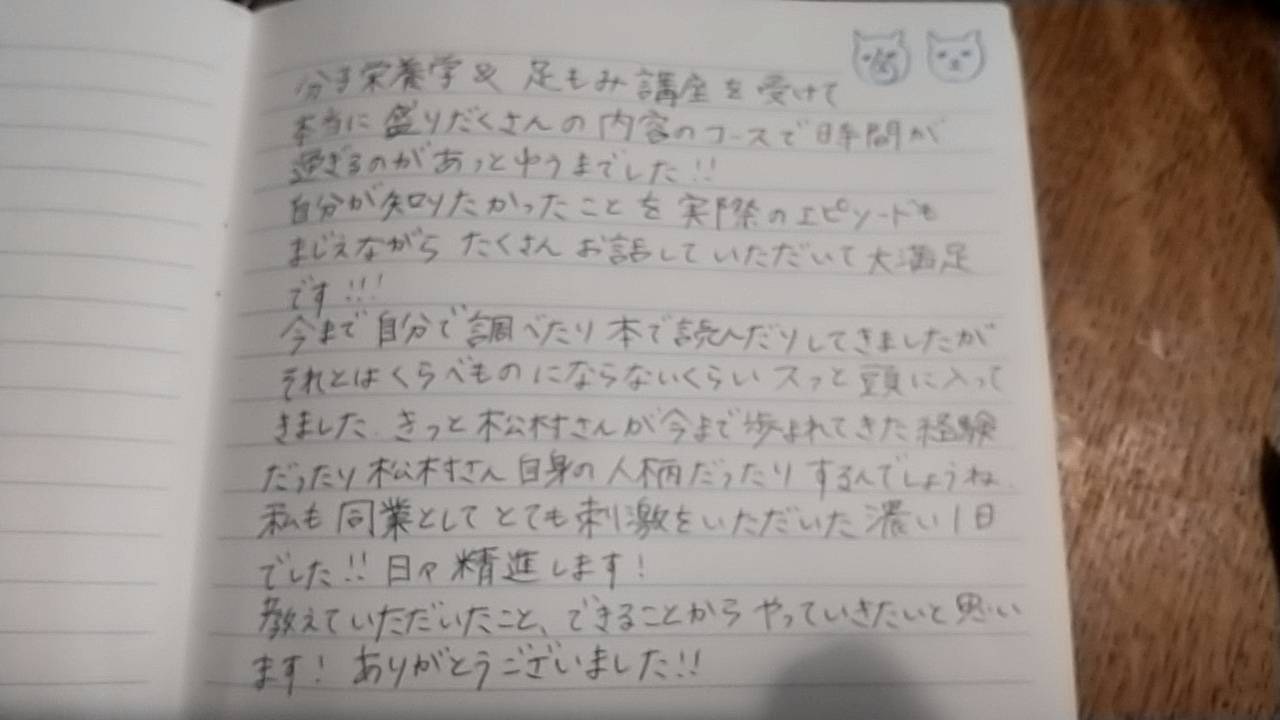 分子栄養学& 足もみ講座を受けて
本当に盛りだくさんの内容のコースで時間が
過ぎるのがあっとゆうまでした!!
自分が知りたかったことを実際のエピソードも
まじえながら たくさんお話していただいて大満足
です!!!
今まで自分で調べたり本で読んだりしてきましたが
それとはくらべものにならないくらいスッと頭に入って
きました. きっと松村さんが今まで歩まれてきた経験
だったり松村さん自身の人柄だったりするんでしょうね.
私も同業としてとても刺激をいただいた濃い1日
でした!! 日々精進します!
教えていただいたこと、できることからやっていきたいと思い
ます! ありがとうございました!!